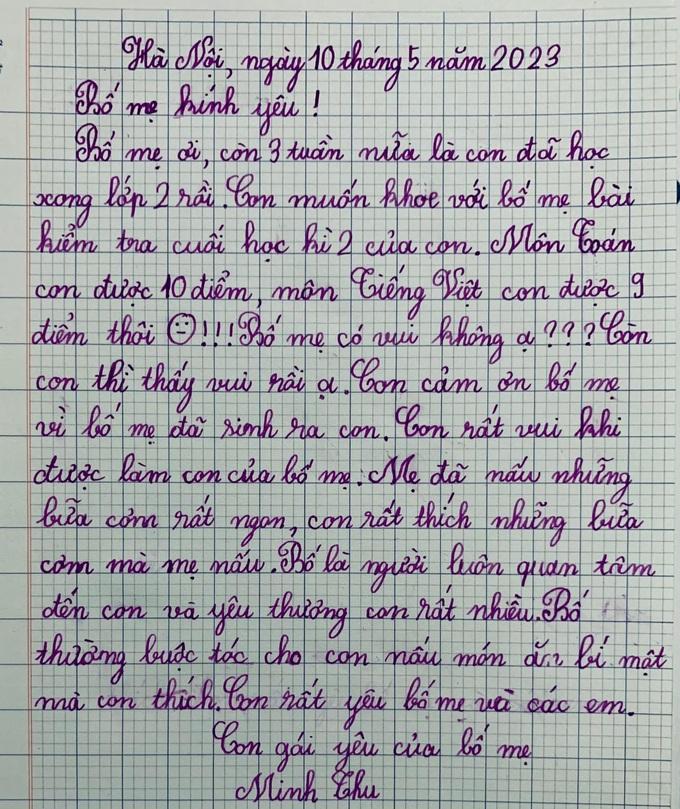 Hà Nội, ngày 10 tháng 5 năm 2023
Bố mẹ kính yêu !
Bố mẹ ơi, còn 3 tuần nữa là con đã học
xong lớp 2 rồi. Con muốn khoe với bố mẹ bài
kiểm tra cuối học kì 2 của con. Môn Toán
con được 10 điểm, môn Tiếng Việt con được 9
điểm thôi ☺!!! Bố mẹ có vui không ạ ??? Còn
con thì thấy vui rồi ạ. Con cảm ơn bố mẹ
vì bố mẹ đã sinh ra con. Con rất vui khi
được làm con của bố mẹ. Mẹ đã nấu những
bữa cơm rất ngon, con rất thích những bữa
cơm mà mẹ nấu. Bố là người luôn quan tâm
đến con và yêu thương con rất nhiều. Bố
thường buộc tóc cho con nấu món ăn bí mật
mà con thích. Con rất yêu bố mẹ và các em.
Con gái yêu của bố mẹ
Minh Thu